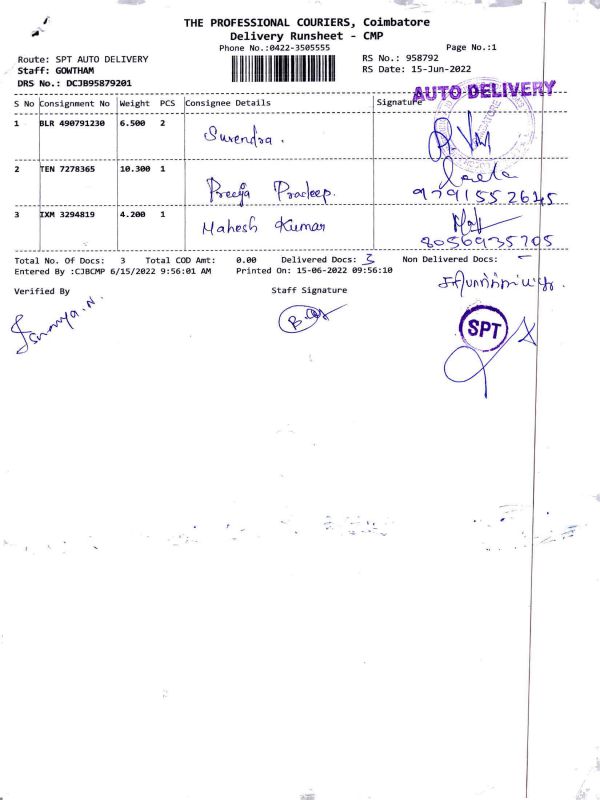 THE PROFESSIONAL COURIERS, Coimbatore
Delivery Runsheet - CMP
Phone No.:0422-3505555
Page No.:1
Route: SPT AUTO DELIVERY
RS No.: 958792
Staff: GOWTHAM
RS Date: 15-Jun-2022
DRS No.: DCJB95879201
AUTO DELIVERY
S No Consignment No Weight PCS Consignee Details Signature
1 BLR 490791230 6.500 2 Surendra.
2 TEN 7278365 10.300 1 Preeja Pradeep. 9791552645
3 IXM 3294819 4.200 1 Mahesh Kumar 8056935705
Total No. Of Docs: 3 Total COD Amt: 0.00 Delivered Docs: 3 Non Delivered Docs: -
Entered By :CJBCMP 6/15/2022 9:56:01 AM Printed On: 15-06-2022 09:56:10
Verified By Staff Signature
SPT